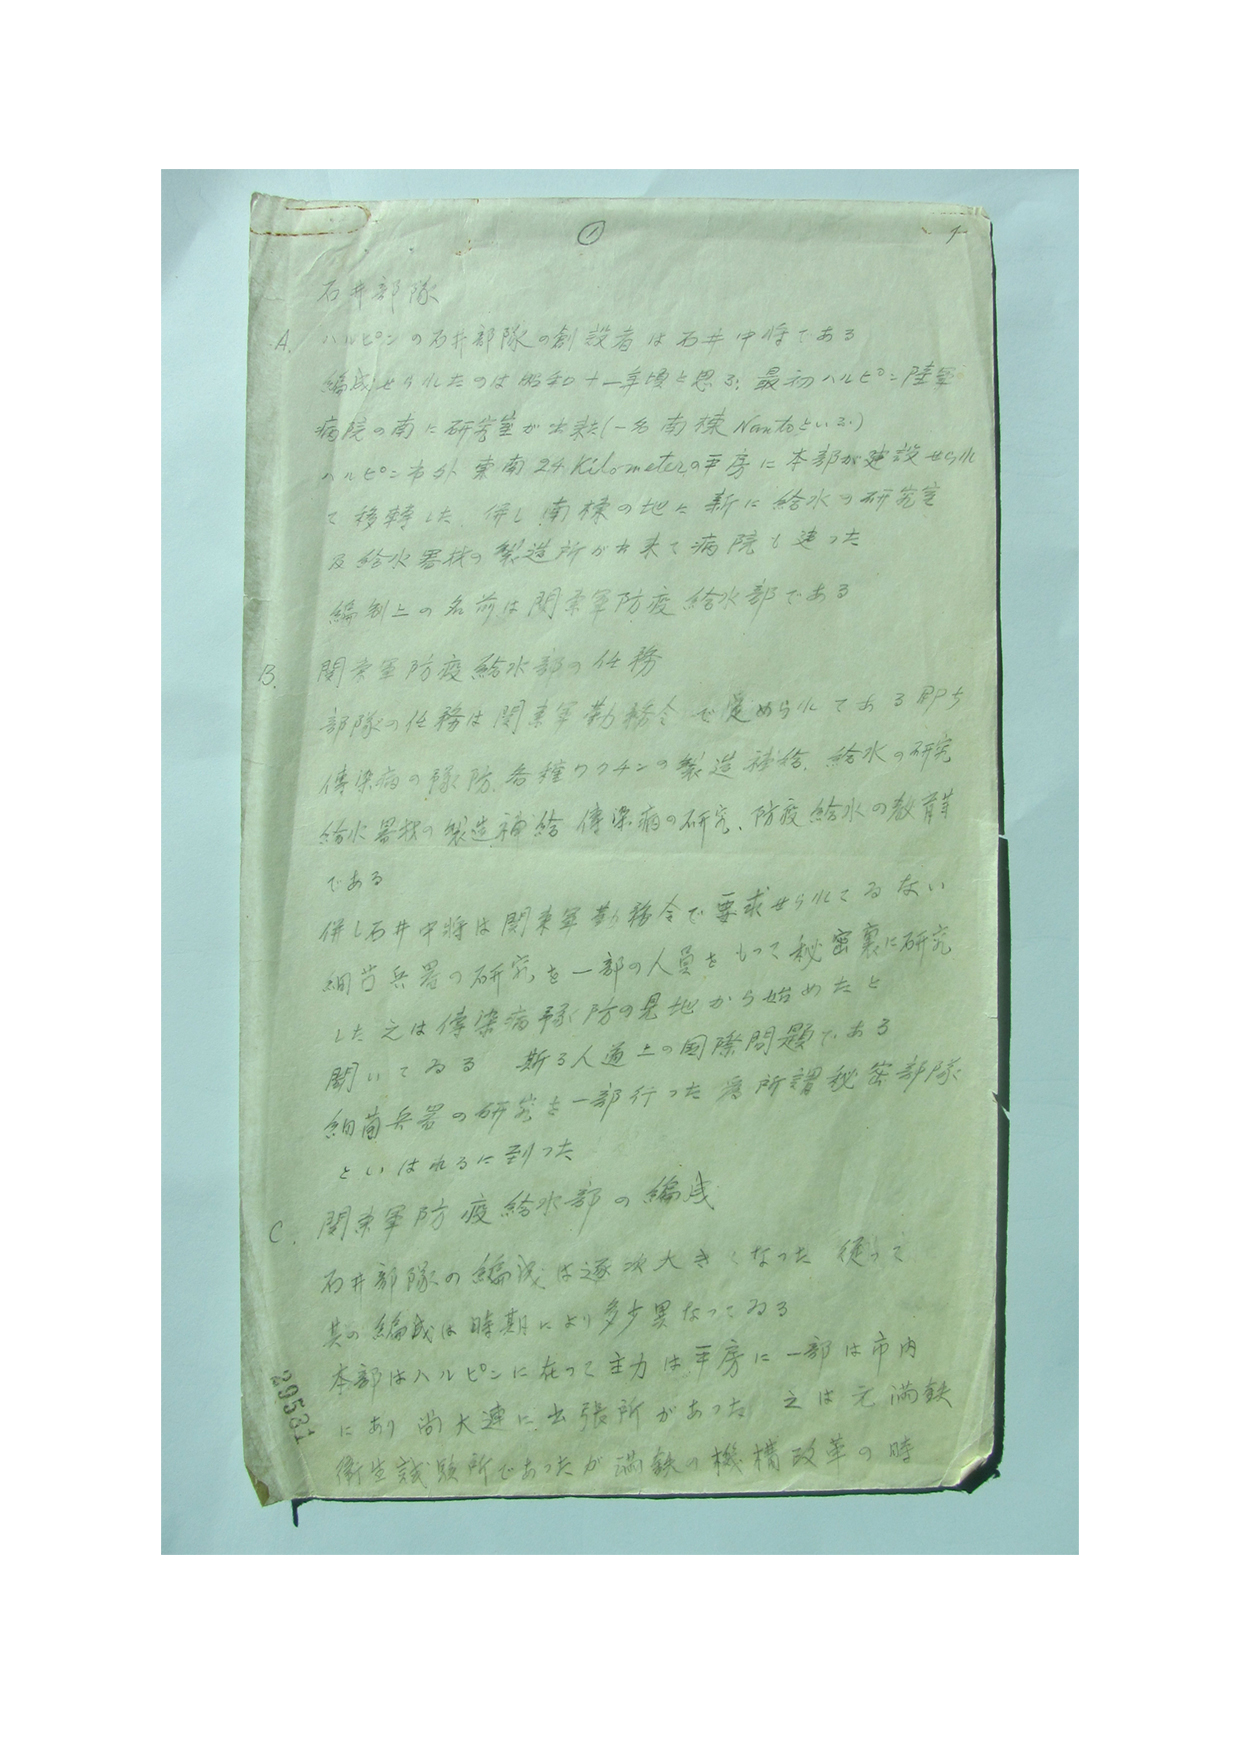 ①
1
石井部隊
A. ハルピンの石井部隊の創設者は石井中将である
編成せられたのは昭和十一年頃と思ふ, 最初ハルピン陸軍
病院の南に研究室が出来た(一名南棟 Nantoといふ)
ハルピン市外東南24 Kilometerの平房に本部が建設せられ
て移轉した. 併し南棟の地に新に給水の研究室
及給水器材の製造所が出来て病院も建った
編制上の名前は関東軍防疫給水部である
B. 関東軍防疫給水部の任務
部隊の任務は関東軍勤務令で定められてある即ち
傳染病の豫防, 各種ワクチンの製造補給, 給水の研究
給水器材の製造補給 傳染病の研究, 防疫給水の教育等
である
併し石井中将は関東軍勤務令で要求せられてゐない
細菌兵器の研究を一部の人員をもって秘密裏に研究
した 之は傳染病豫防の見地から始めたと
聞いてゐる 斯る人道上の国際問題である
細菌兵器の研究を一部行った為所謂秘密部隊
といはれるに到った
C. 関東軍防疫給水部の編成
石井部隊の編成は逐次大きくなった 従って
其の編成は時期により多少異なってゐる
本部はハルピンに在って主力は平房に一部は市内
にあり 尚大連に出張所があった 之は元満鉄
衛生試験所であったが満鉄の機構改革の時
29531